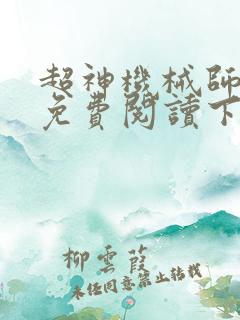 超神機械師
免費閱讀下
柳雲葭
未经同意禁止转载